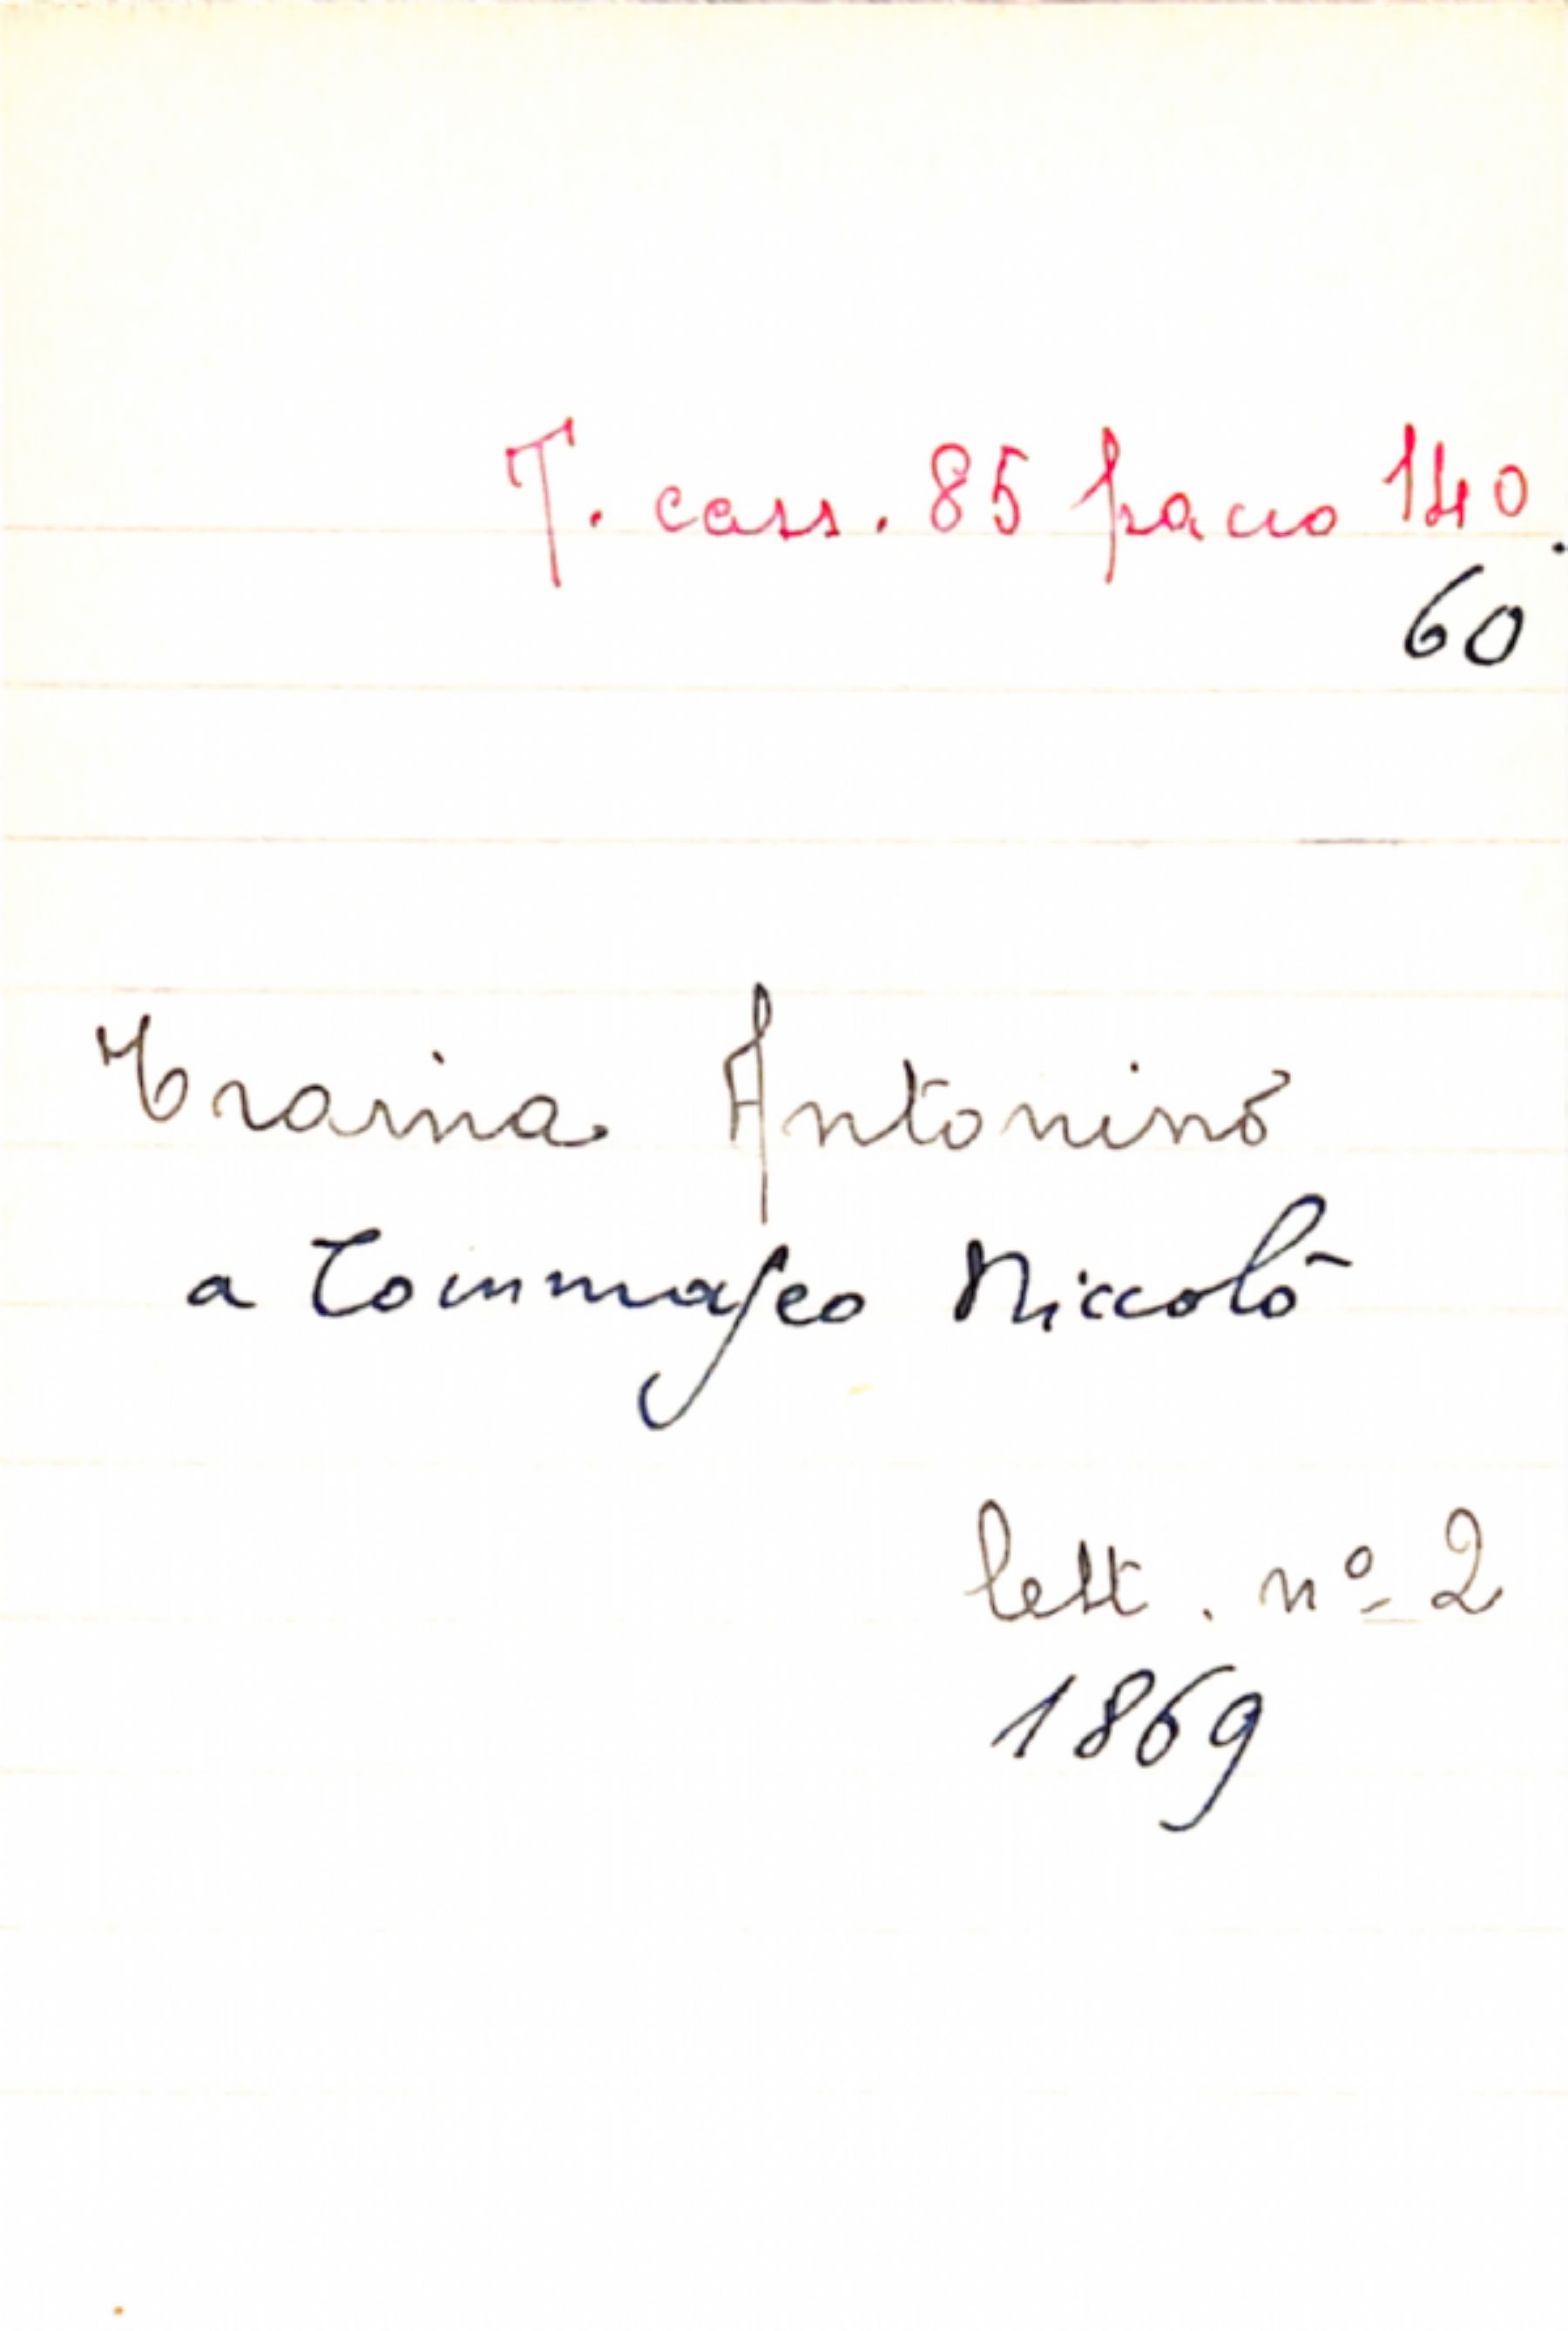 T. cass. 85 pacco 140.
60
Traina Antonino
a Tommaseo Niccolò
lett. nº 2
1869